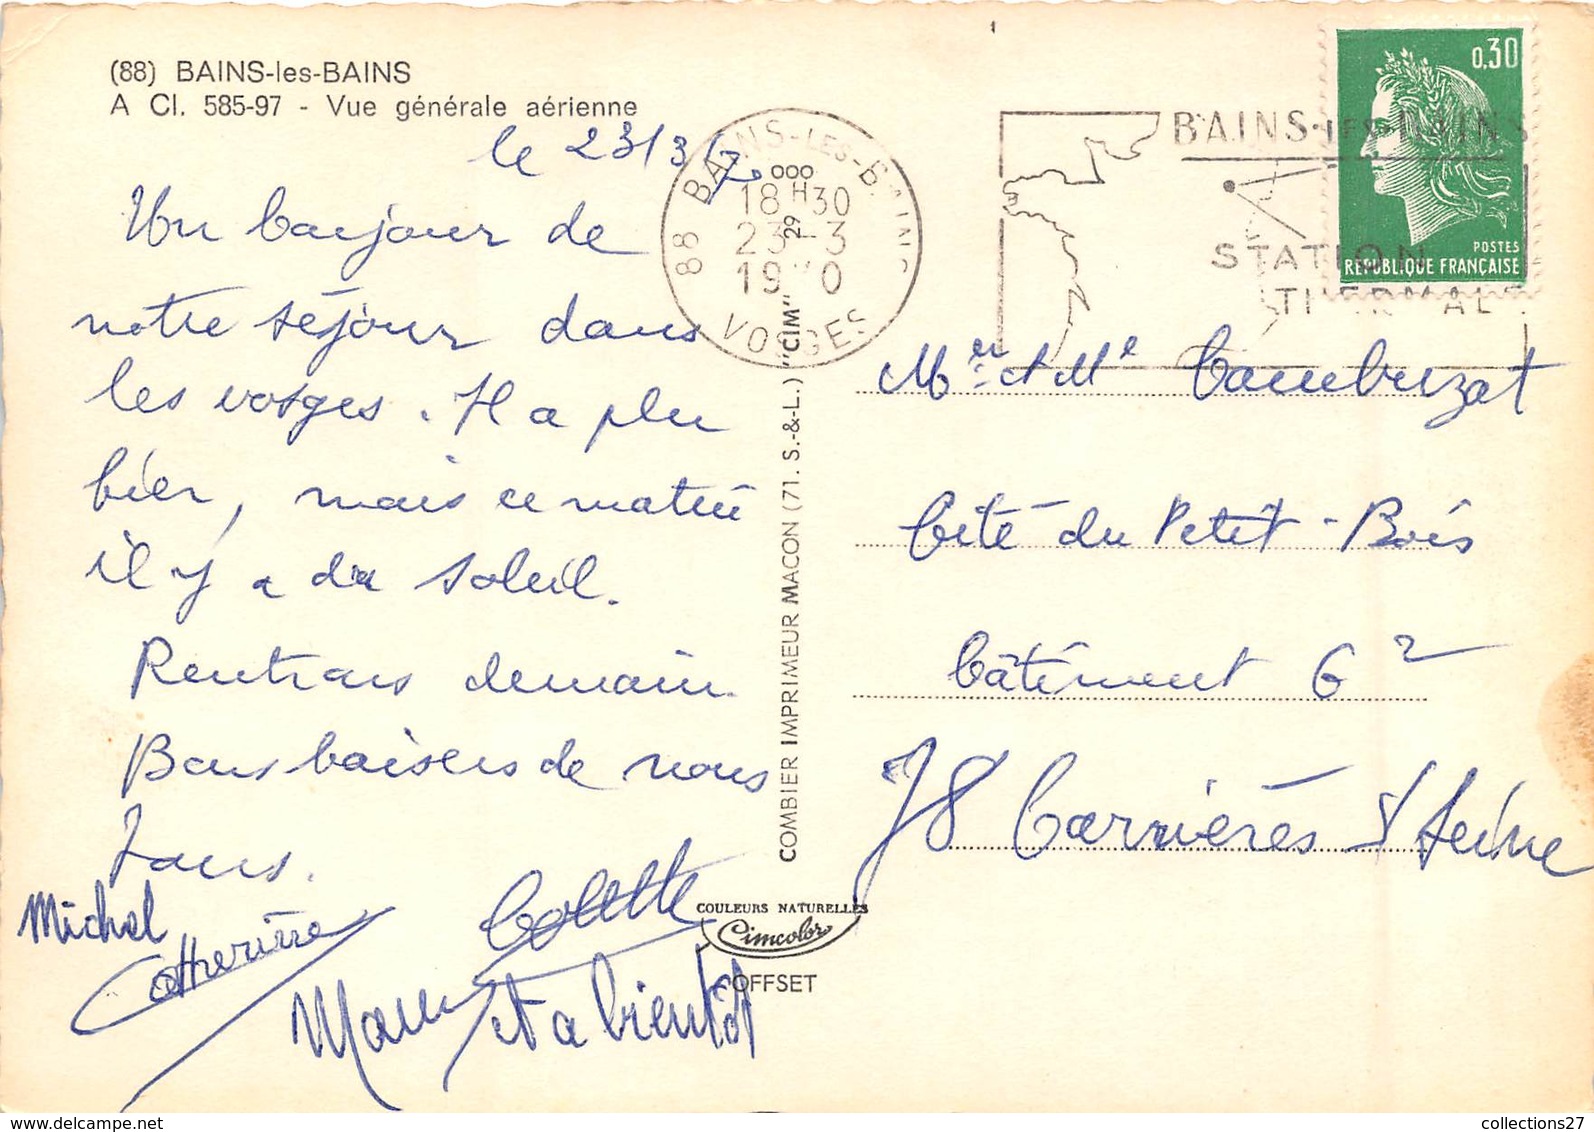 (88) BAINS-les-BAINS
A Cl. 585-97 - Vue générale aérienne
le 23/3/70
Un bonjour de
notre séjour dans
les vosges. Il a plu
hier, mais ce matin
il y a du soleil.
Rentrons demain.
Bons baisers de nous
Tous.
Michel
Catherine
Colette
et a bientôt
88 BAINS-LES-BAINS
18H30
23-3
1970
VOSGES
BAINS-LES-BAINS
STATION
THERMALE
0,30
POSTES
RÉPUBLIQUE FRANÇAISE
COMBIER IMPRIMEUR MACON (71. S.-&-L.) "CIM" 29 ooo
Mr et Me Cambuzat
Cité du Petit-Bois
bâtiment G2
78 Carrières S/ Seine
COULEURS NATURELLES
Cimcolor
OFFSET
collections27